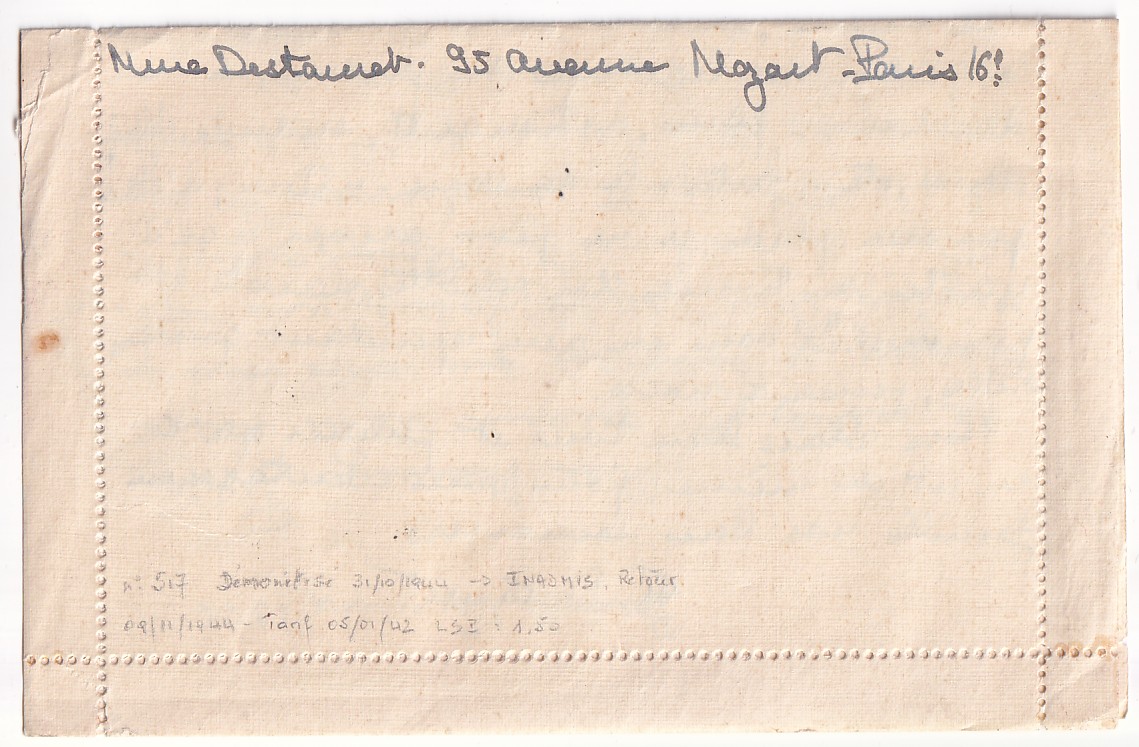 Mme Destamet. 95 avenue Mozart - Paris 16e
n° 517 Démonétisé 31/10/1944 -> INADMIS. Retour.
09/11/1944 - Tarif 05/01/42 LSI : 1,50